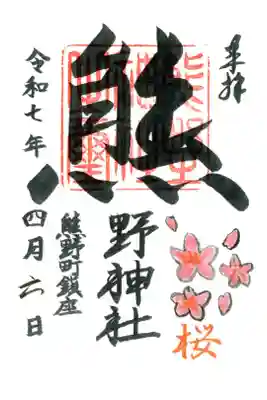 奉拝
桜
熊
野神社
熊野町鎮座
令和七年
四月六日